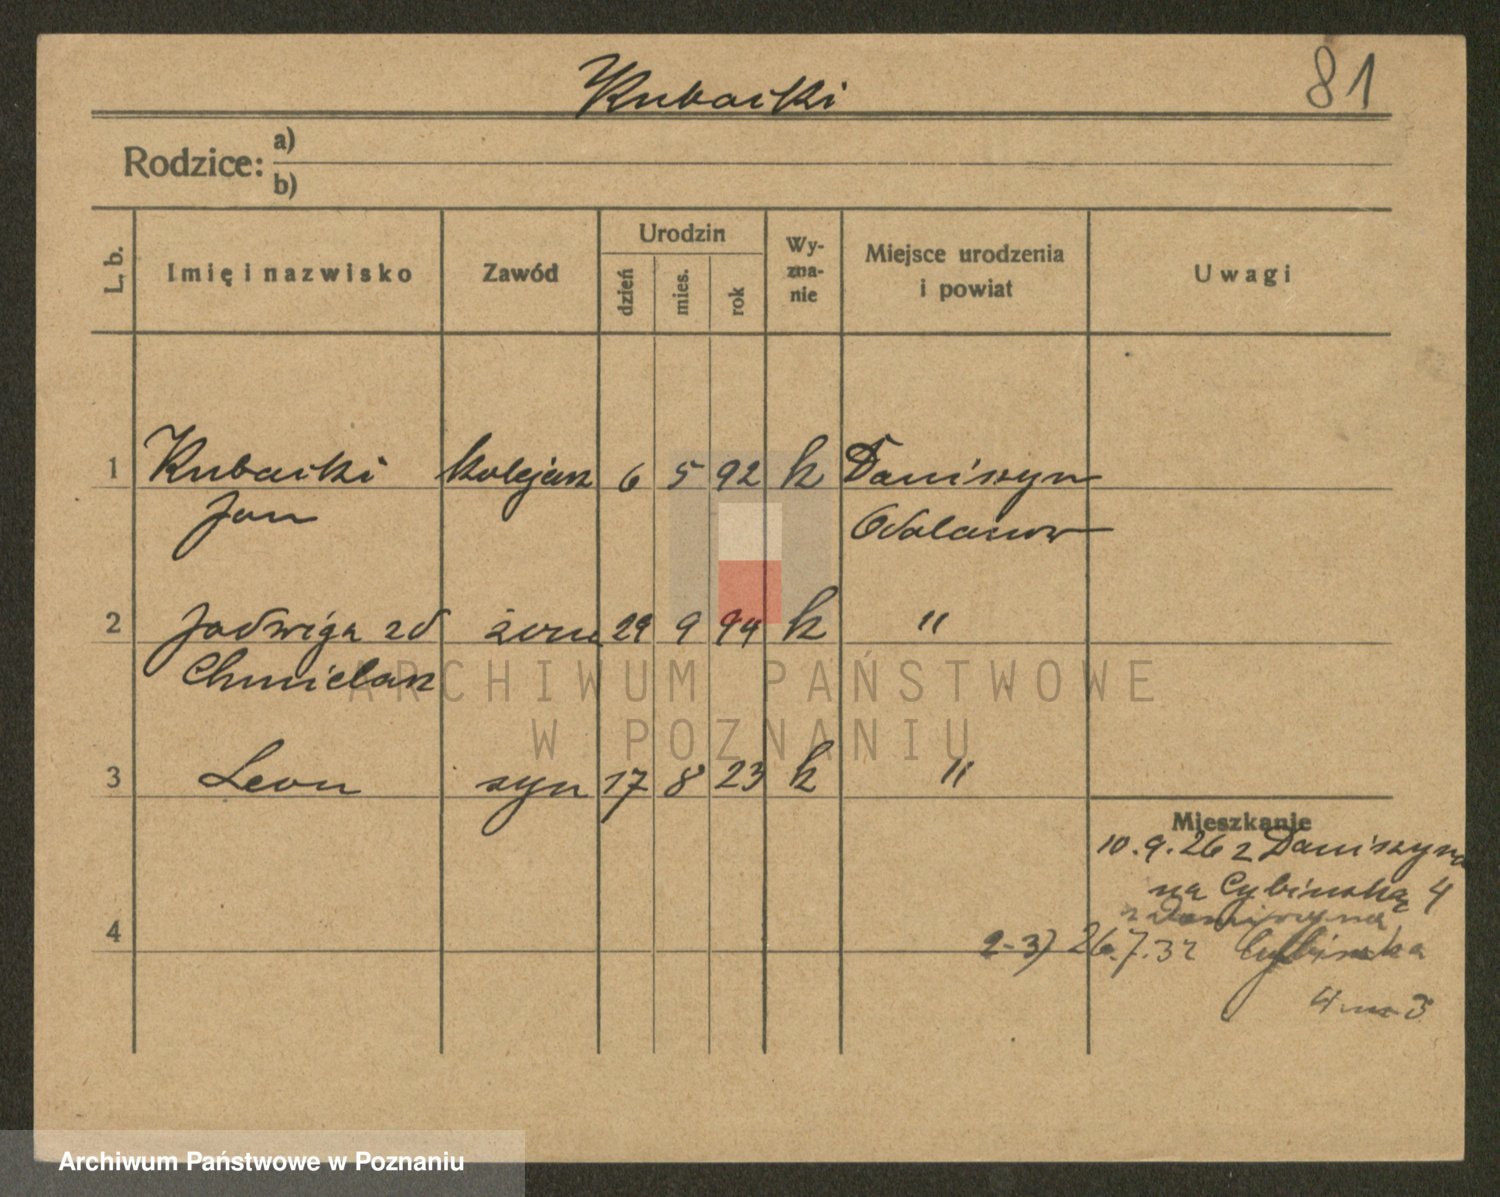 Kubacki
81
Rodzice:
a)
b)
L. b.
Imię i nazwisko
Zawód
Urodzin
dzień
mies.
rok
Wy-
zna-
nie
Miejsce urodzenia
i powiat
Uwagi
1 Kubacki kolejarz 6 5 92 k Daniszyn
Jan Odolanów
2 Jadwiga zd żona 29 9 94 k "
Chmielarz
3 Leon syn 17 8 23 k "
Mieszkanie
10.9.26 z Daniszyna
na Cybińską 4
z Daniszyna
4
2-3) 26.7.32 Cybińska
4 m 3
ARCHIWUM PAŃSTWOWE
W POZNANIU
Archiwum Państwowe w Poznaniu